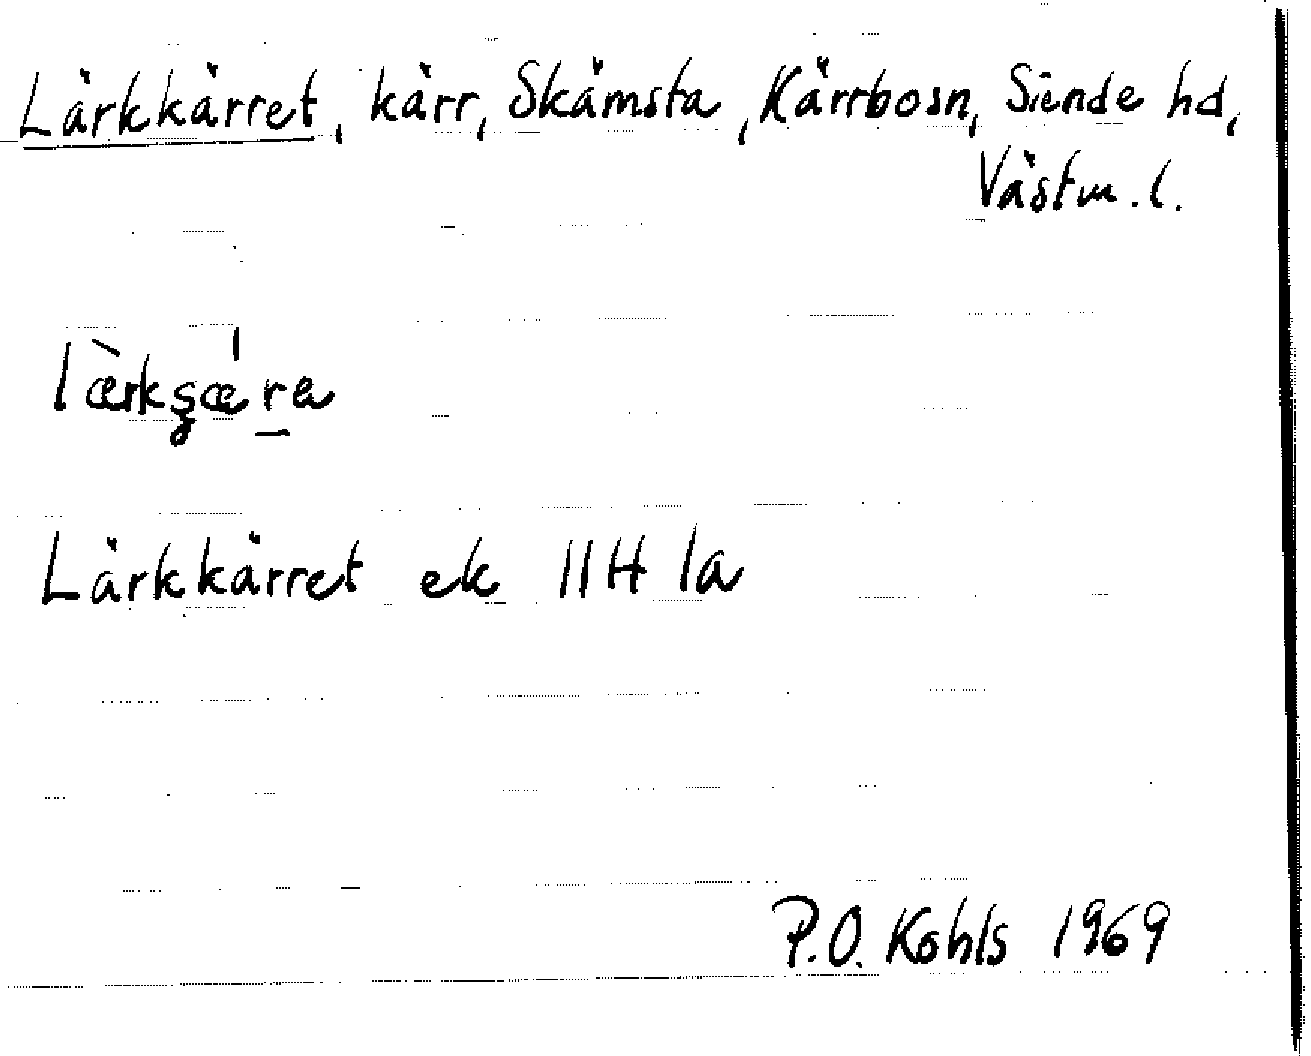 Lärkkärret, kärr, Skämsta, Kärrbosn, Siende hd,
Västm. l.
lærkʂæra
Lärkkärret ek 11H 1a
P.O. Kohls 1969